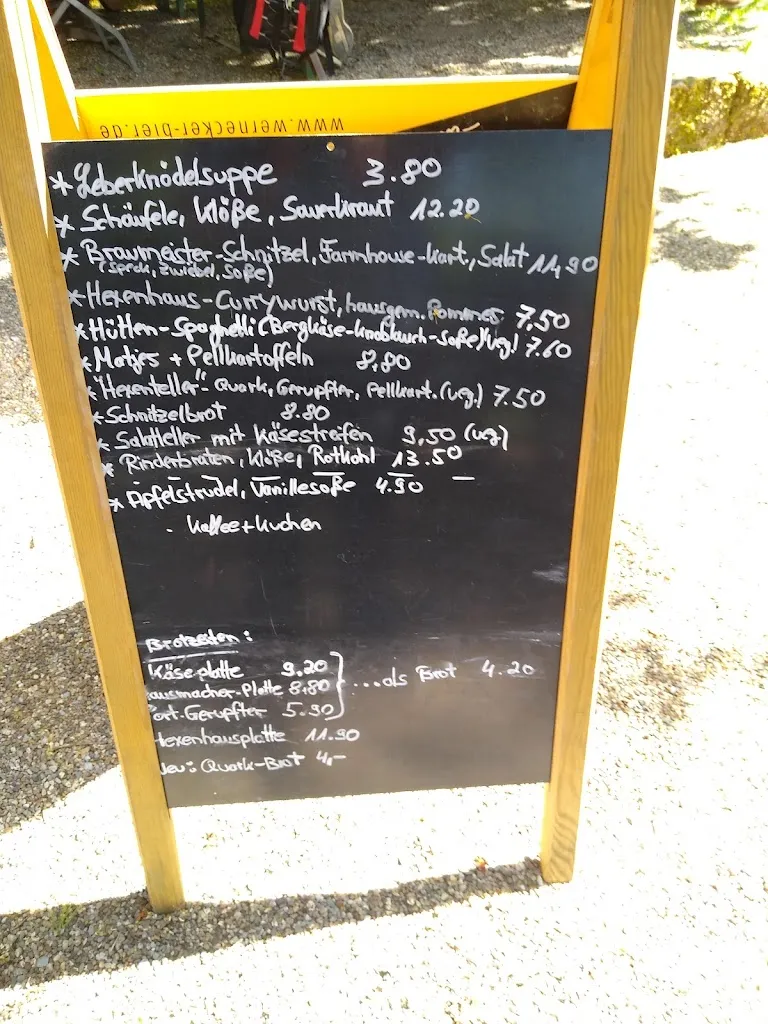 www.wernecker-bier.de
* Leberknödelsuppe 3.80
* Schäufele, Klöße, Sauerkraut 12.20
* Braumeister-Schnitzel, Farmhouse-kart., Salat 11,90
(Speck, Zwiebel, Soße)
* Hexenhaus-Currywurst, hausgem. Pommes 7.50
* Hütten-Spaghetti (Bergkäse-Knoblauch-Soße) Veg! 7.60
* Matjes + Pellkartoffeln 8,80
* "Hexenteller": Quark, Gerupfter, Pellkart. (veg.) 7.50
* Schnitzelbrot 8.80
* Salatteller mit Käsestreifen 9,50 (veg)
* Rinderbraten, Klöße, Rotkohl 13.50
* Apfelstrudel, Vanillesoße 4.90
- Kaffee + Kuchen
Brotzeiten:
Käseplatte 9.20
ausmacher-Platte 8,80 } ...als Brot 4.20
ort. Gerupfter 5.90
Hexenhausplatte 11.90
Neu: Quark-Brot 4,-